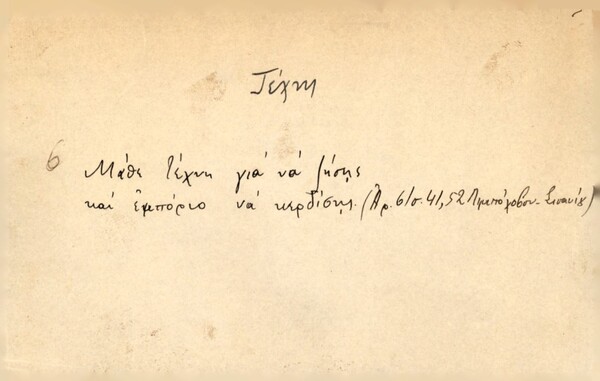 Τέχνη
6 Μάθε τέχνη γιά νά ζήσης
καί ἐμπόριο νά κερδίσης. (Ἀρ. 6/σ. 41, 52